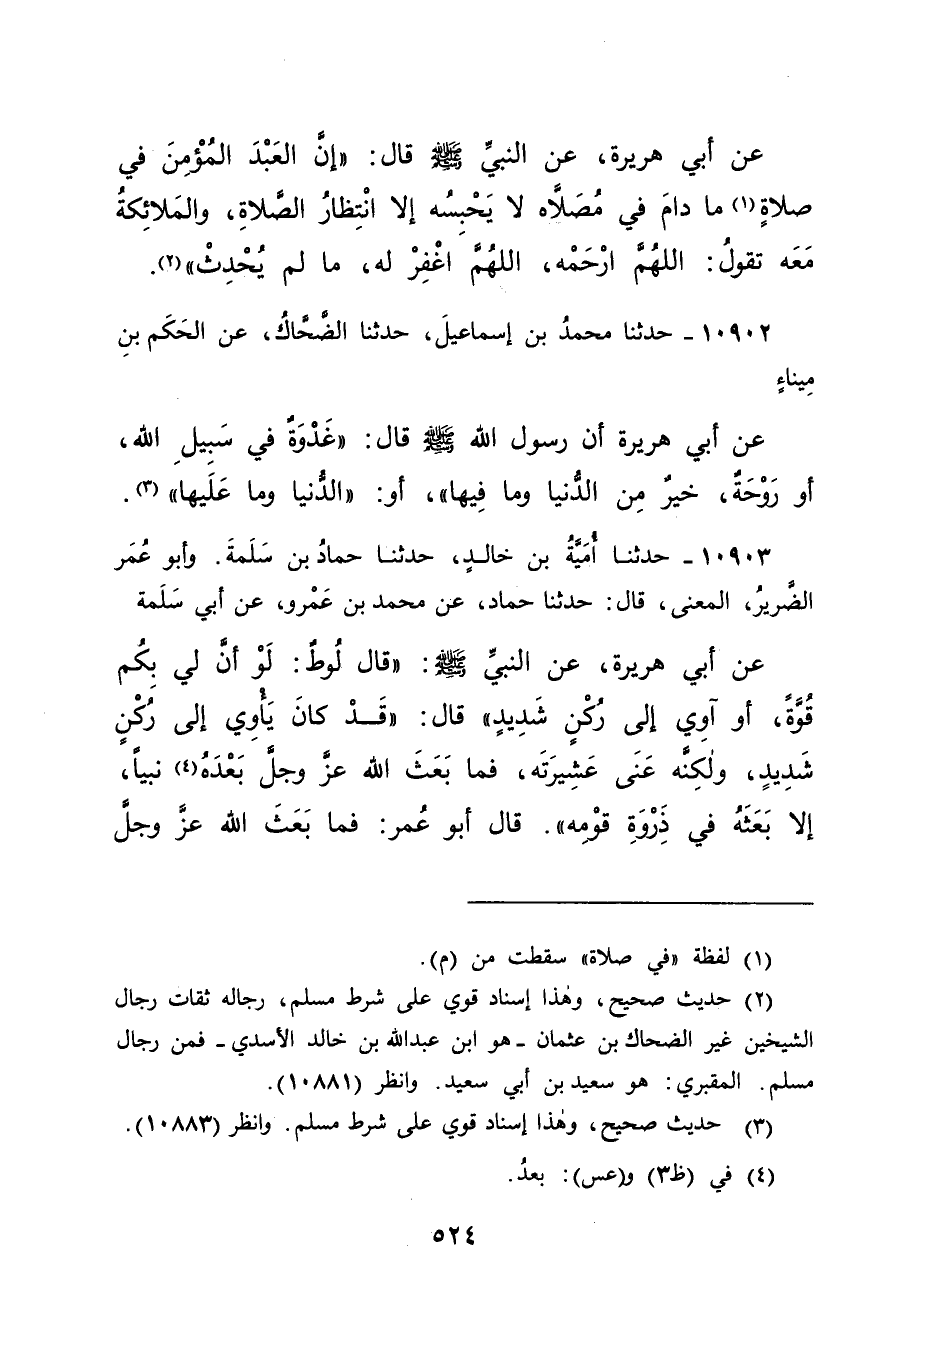 عن أبي هريرة، عن النبيِّ ﷺ قال: «إنَّ العَبْدَ المُؤْمِنَ في
صلاةٍ(١) ما دامَ في مُصَلاَّه لا يَحْبِسُه إلا انْتِظارُ الصَّلاةِ، والمَلائِكةُ
مَعَه تقولُ: اللهُمَّ ارْحَمْه، اللهُمَّ اغْفِرْ له، ما لم يُحْدِثْ»(٢).
١٠٩٠٢ ـ حدثنا محمدُ بن إسماعيلَ، حدثنا الضَّحَّاكُ، عن الحَكَم بنِ
مِيناءٍ
عن أبي هريرة أن رسول الله ﷺ قال: «غَدْوَةٌ في سَبِيلِ الله،
أو رَوْحَةٌ، خيرٌ مِن الدُّنيا وما فِيها»، أو: «الدُّنيا وما عَلَيها»(٣).
١٠٩٠٣ ـ حدثنا أُمَيَّةُ بن خالدٍ، حدثنا حمادُ بن سَلَمةَ. وأبو عُمَر
الضَّريرُ، المعنى، قال: حدثنا حماد، عن محمد بن عَمْرو، عن أبي سَلَمة
عن أبي هريرة، عن النبيِّ ﷺ: «قال لُوطٌ: لَوْ أنَّ لي بِكُم
قُوَّةً، أو آوِي إلى رُكْنٍ شَدِيدٍ» قال: «قَدْ كانَ يَأْوِي إلى رُكْنٍ
شَدِيدٍ، ولٰكِنَّه عَنَى عَشِيرَتَه، فما بَعَثَ الله عزَّ وجلَّ بَعْدَهُ(٤) نبياً،
إلا بَعَثَهُ في ذِرْوَةِ قوْمِه». قال أبو عُمر: فما بَعَثَ الله عزَّ وجلَّ
(١) لفظة «في صلاة» سقطت من (م).
(٢) حديث صحيح، وهٰذا إسناد قوي على شرط مسلم، رجاله ثقات رجال
الشيخين غير الضحاك بن عثمان ـ هو ابن عبدالله بن خالد الأسدي ـ فمن رجال
مسلم. المقبري: هو سعيد بن أبي سعيد. وانظر (١٠٨٨١).
(٣) حديث صحيح، وهٰذا إسناد قوي على شرط مسلم. وانظر (١٠٨٨٣).
(٤) في (ظ٣) و(عس): بعدُ.
٥٢٤